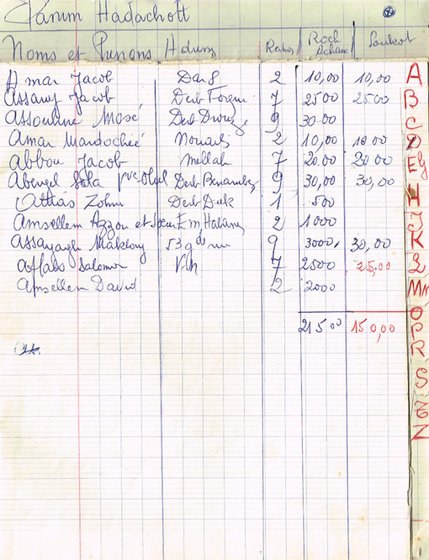 Tánim Hadachott
Noms et Prénoms Adress Rations Roch Achana Soukot
Amar Jacob Dar 8 2 10,00 10,00
Assaraf Jacob Derb 7 25 00 25 00
Assouline Mosé Derb 9 30.00
Amar Mardochié Nouail 2 10,00 10 00
Abbou Jacob Mellah 7 20.00 20 00
Abergel Sola Derb Benarrabez 9 30,00 30,00
Attias Zohra Derb 1 500
Amsellem Azzou et Soeur Em Habanim 2 1000
Assayagh Makhlouf 53 gde rue 9 3000, 30.00
Affalo Salomon V.N 7 2500 25,00
Amsellem David 2 2000
215 00 150,00
A
B
C
D
E
H
J
K
L
M
O
P
R
S
T
Z